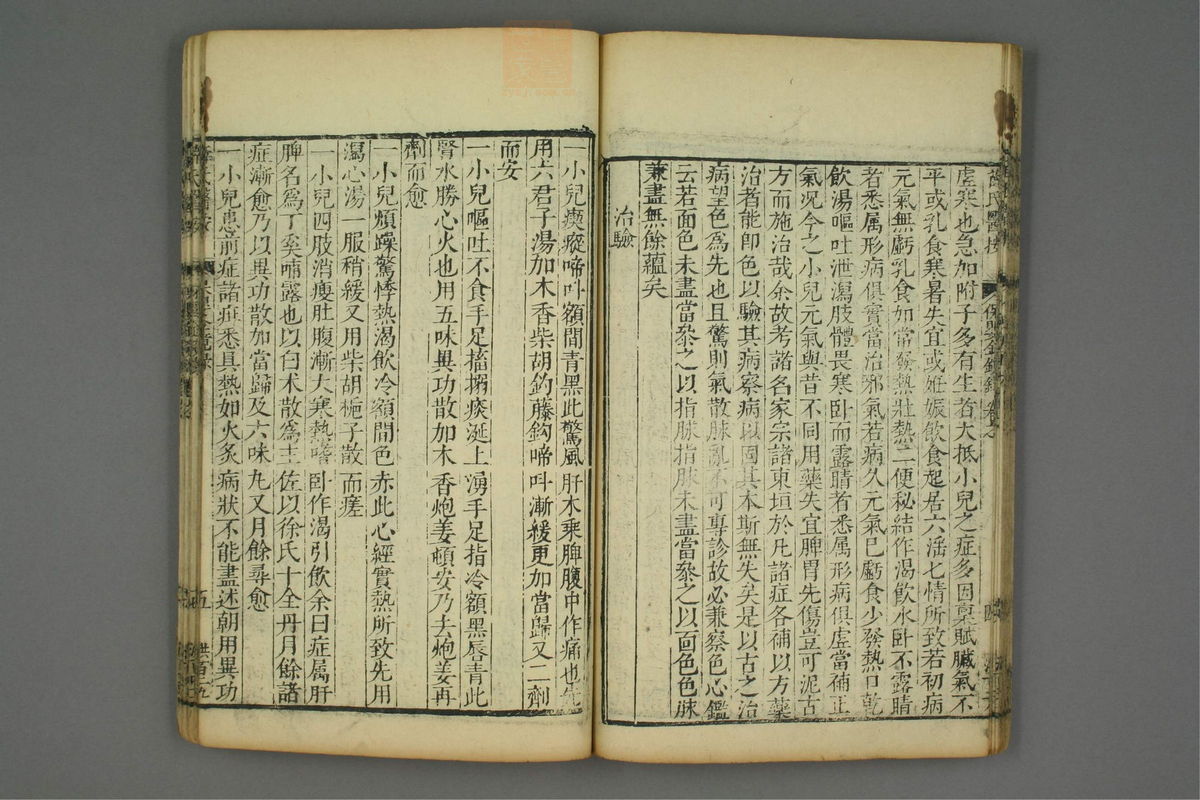 虛寒也急加附子多有生若大抵小兒之症多因稟賦臟氣不
平或乳食寒暑失宜或姙娠飲食起居六淫七情所致若初病
元氣無虧乳食如常發熱壯熱二便秘結作渴飲水卧不露睛
者悉属形病俱實當治邪氣若病久元氣已虧食少發熱口乾
飲湯嘔吐泄瀉肢體畏寒卧而露睛者悉属形病俱虛當補正
氣况今之小兒元氣與昔不同用藥失宜脾胃先傷豈可泥古
方而施治哉余故考諸名家宗諸東垣於凡諸症各補以方藥
治者能即色以驗其病察病以固其本斯無失矣是以古之治
病望色為先也且驚則氣散脉亂不可專診故必兼察色心鑑
云若面色未盡當叅之以指脉指脉未盡當叅之以面色色脉
兼盡無餘蘊矣
治驗
一小兒瘈瘲啼叫額間青黑此驚風肝木乘脾腹中作痛也先
用六君子湯加木香柴胡釣藤鈎啼呌漸緩更加當歸又二劑
而安
一小兒嘔吐不食手足搐搦痰涎上湧手足指冷額黑唇青此
腎水勝心火也用五味異功散加木香炮姜頓安乃去炮姜再
劑而愈
一小兒煩躁驚悸熱渴飲冷額間色赤此心經實熱所致先用
瀉心湯一服稍緩又用柴胡梔子散而瘥
一小兒四肢消瘦肚腹漸大寒熱嗜卧作渴引飲余曰症属肝
脾名為丁奚哺露也以白术散為主佐以徐氏十全丹月餘諸
症漸愈乃以異功散加當歸及六味九又月餘尋愈
一小兒患前症諸症悉具熱如火炙病狀不能盡述朝用異功